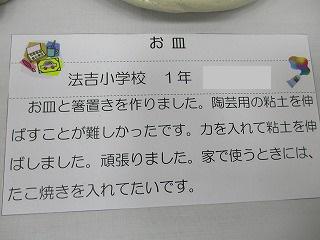 お 皿
法吉小学校　１年
お皿と箸置きを作りました。陶芸用の粘土を伸
ばすことが難しかったです。力を入れて粘土を伸
ばしました。頑張りました。家で使うときには、
たこ焼きを入れてたいです。